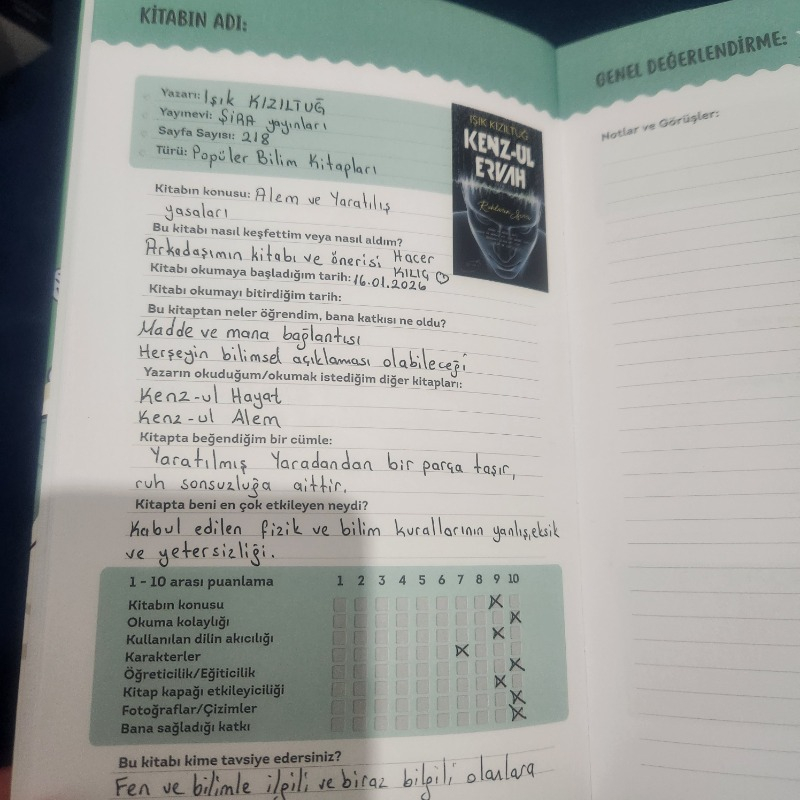 KİTABIN ADI:
Yazarı: Işık KIZILTUĞ
Yayınevi: ŞİRA yayınları
Sayfa Sayısı: 218
Türü: Popüler Bilim Kitapları
IŞIK KIZILTUĞ
KENZ-UL
ERVAH
Kitabın konusu: Alem ve Yaratılış
yasaları
Bu kitabı nasıl keşfettim veya nasıl aldım?
Arkadaşımın kitabı ve önerisi Hacer
KILIÇ ♡
Kitabı okumaya başladığım tarih: 16.01.2026
Kitabı okumayı bitirdiğim tarih:
Bu kitaptan neler öğrendim, bana katkısı ne oldu?
Madde ve mana bağlantısı
Herşeyin bilimsel açıklaması olabileceği
Yazarın okuduğum/okumak istediğim diğer kitapları:
Kenz-ul Hayat
Kenz-ul Alem
Kitapta beğendiğim bir cümle:
Yaratılmış Yaradandan bir parça taşır,
ruh sonsuzluğa aittir.
Kitapta beni en çok etkileyen neydi?
Kabul edilen fizik ve bilim kurallarının yanlış,eksik
ve yetersizliği.
1 - 10 arası puanlama 1 2 3 4 5 6 7 8 9 10
Kitabın konusu
Okuma kolaylığı
Kullanılan dilin akıcılığı
Karakterler
Öğreticilik/Eğiticilik
Kitap kapağı etkileyiciliği
Fotoğraflar/Çizimler
Bana sağladığı katkı
Bu kitabı kime tavsiye edersiniz?
Fen ve bilimle ilgili ve biraz bilgili olanlara
GENEL DEĞERLENDİRME:
Notlar ve Görüşler: